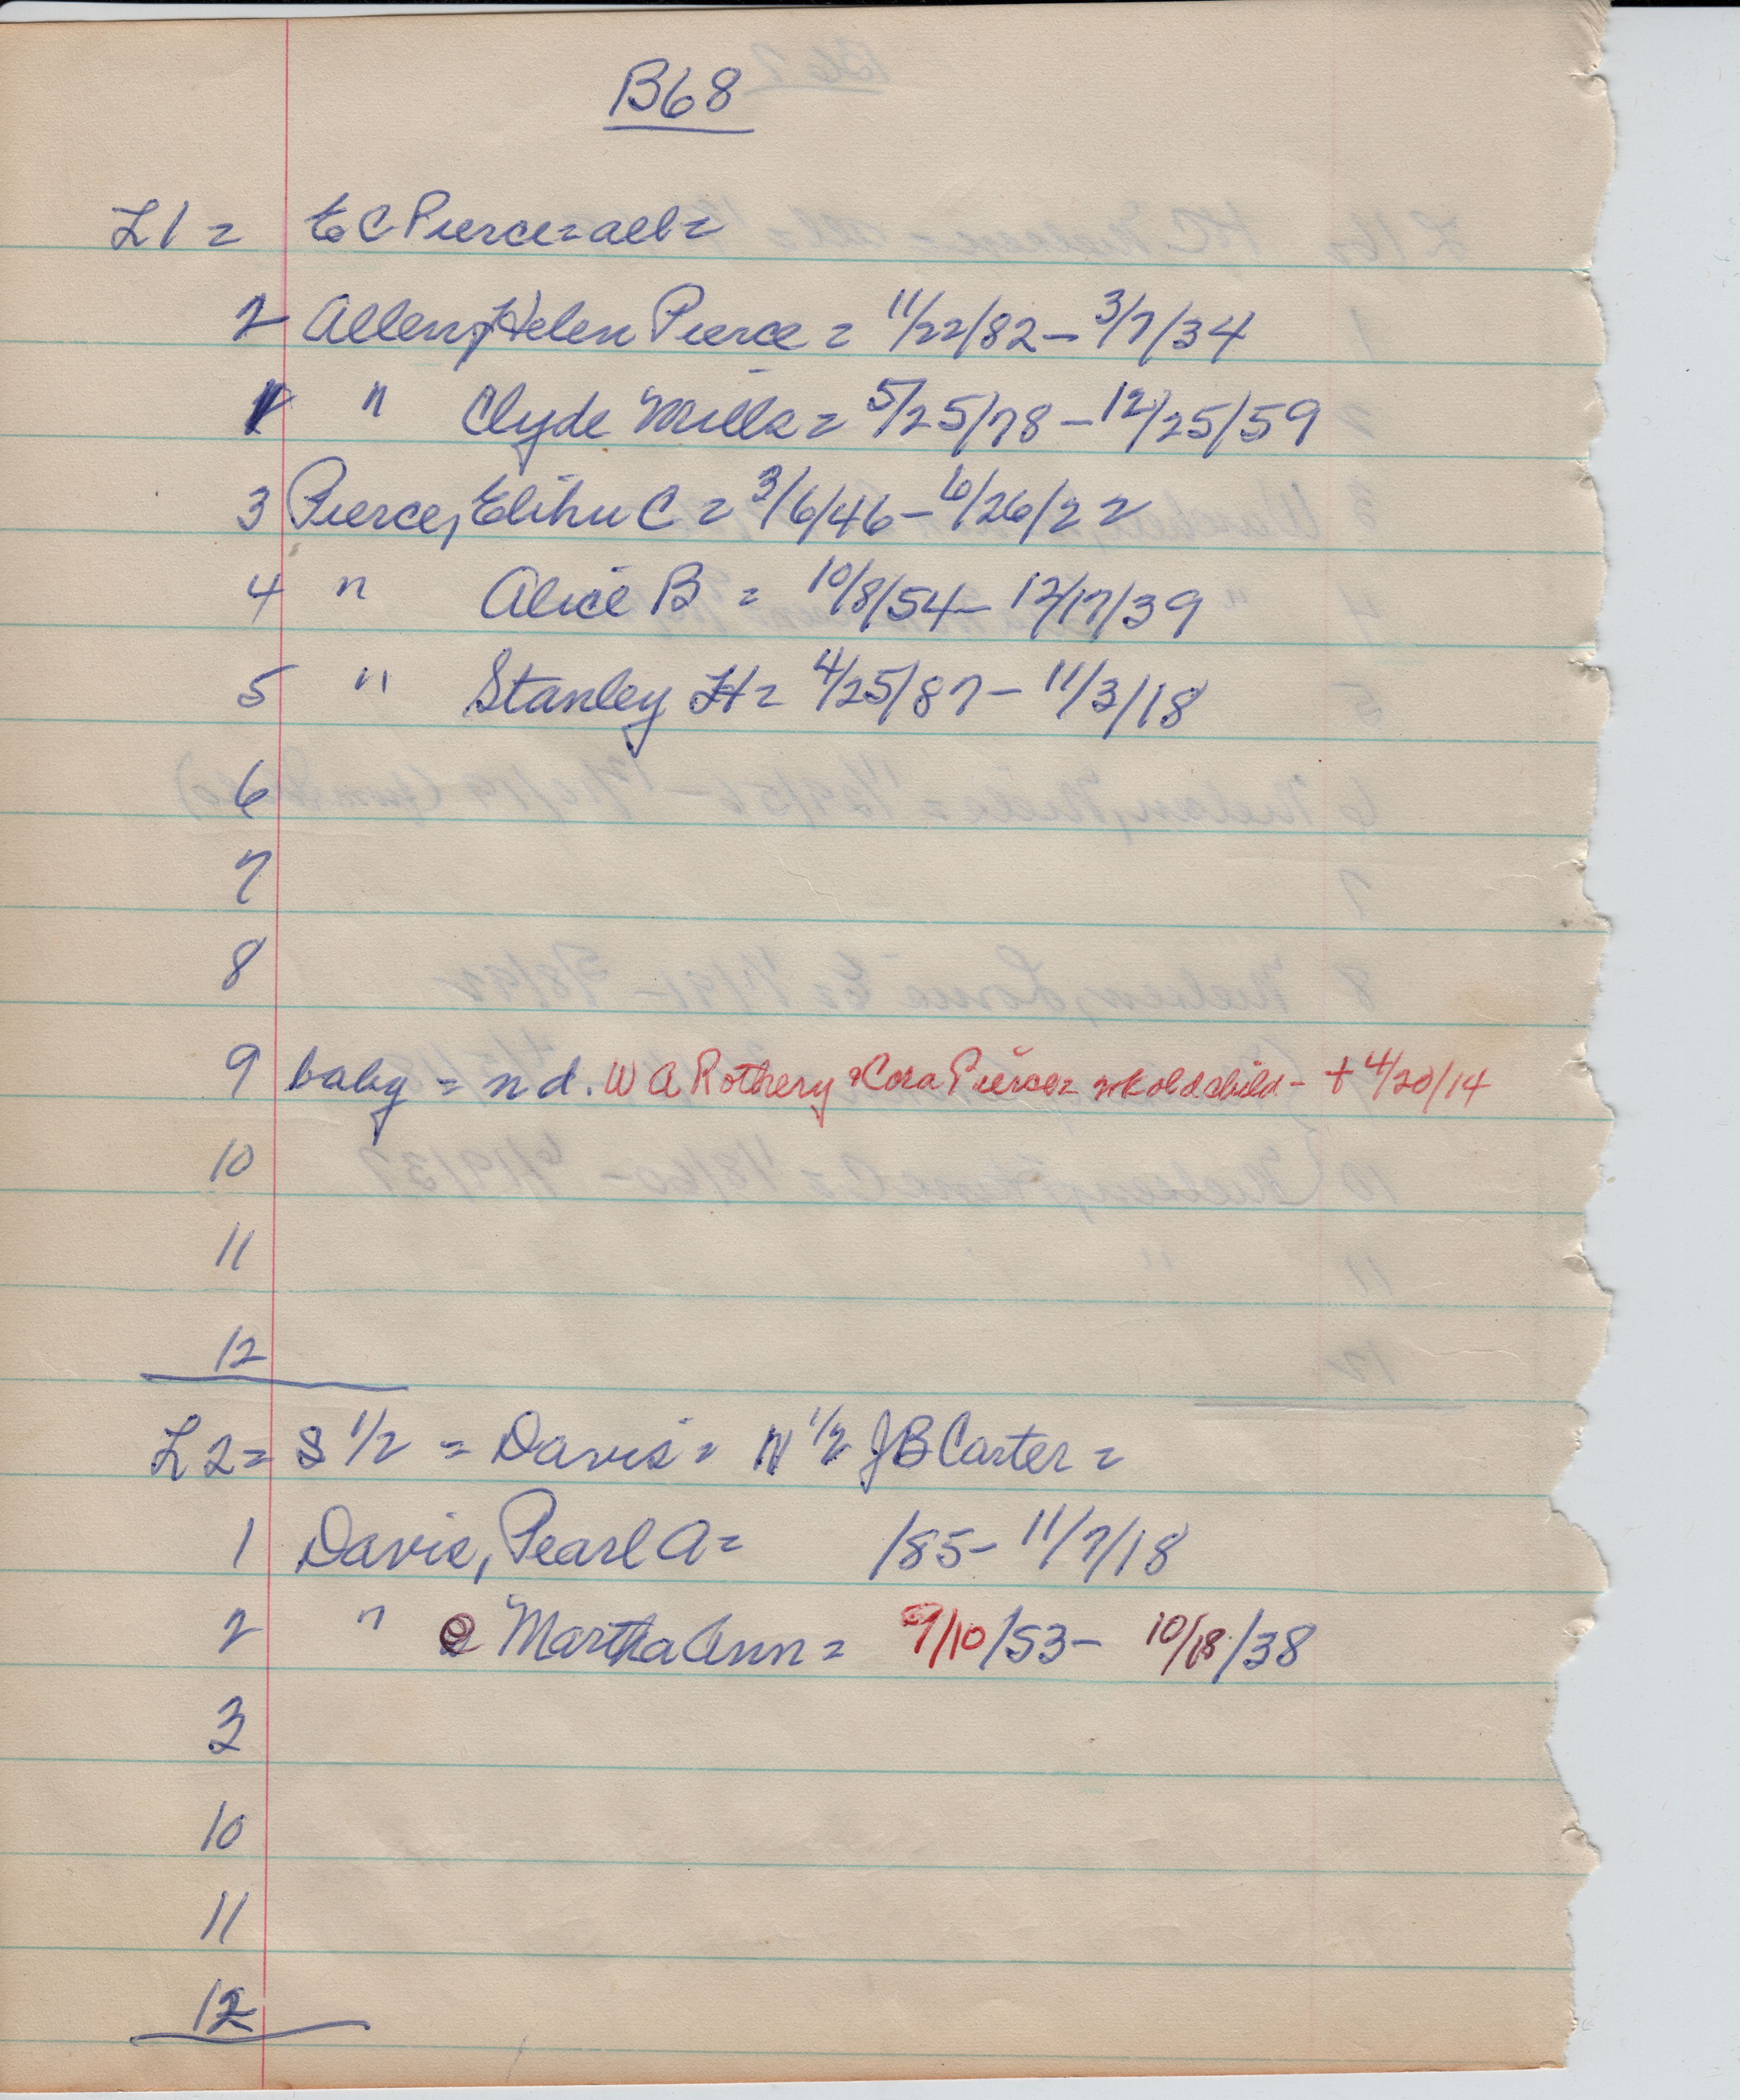 B68
L1 = E C Pierce = all =
2 Allen, Helen Pierce = 11/22/82 - 3/7/34
1 " Clyde Mills = 5/25/78 - 12/25/59
3 Pierce, Elihu C = 3/6/46 - 6/26/22
4 " Alice B = 10/8/54 - 12/17/39
5 " Stanley H = 4/25/87 - 11/3/18
6
7
8
9 baby = nd. W A Rothery & Cora Pierce = wk old child - + 4/20/14
10
11
12
L2 = S 1/2 = Davis = N 1/2 J B Carter =
1 Davis, Pearl A = /85 - 11/7/18
2 " Martha Ann = 9/10/53 - 10/18/38
3
10
11
12